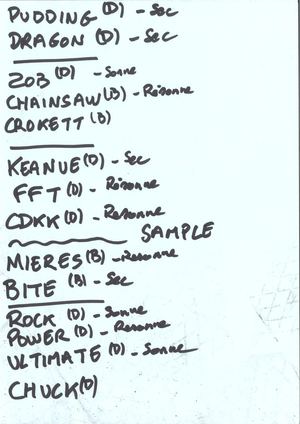 PUDDING (D) - Sec
DRAGON (D) - Sec
ZOB (D) - Sonne
CHAINSAW (B) - Résonne
CROKETT (B)
KEANUE (D) - Sec
FFT (D) - Résonne
CDKK (D) - Resonne
SAMPLE
MIERES (B) - Resonne
BITE (B) - Sec
ROCK (D) - Sonne
POWER (D) - Resonne
ULTIMATE (D) - Sonne
CHUCK (D)